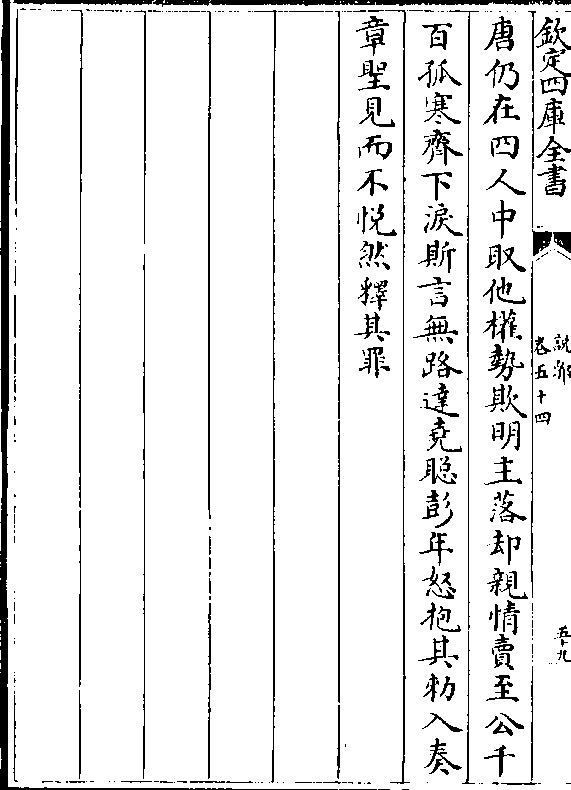 欽定四庫全書
說郛
卷五十四
五十九
唐仍在四人中取他權勢欺明主落却親情賣至公千
百孤寒齊下淚斯言無路達堯聰彭年怒抱其勑入奏
章聖見而不悅然釋其罪